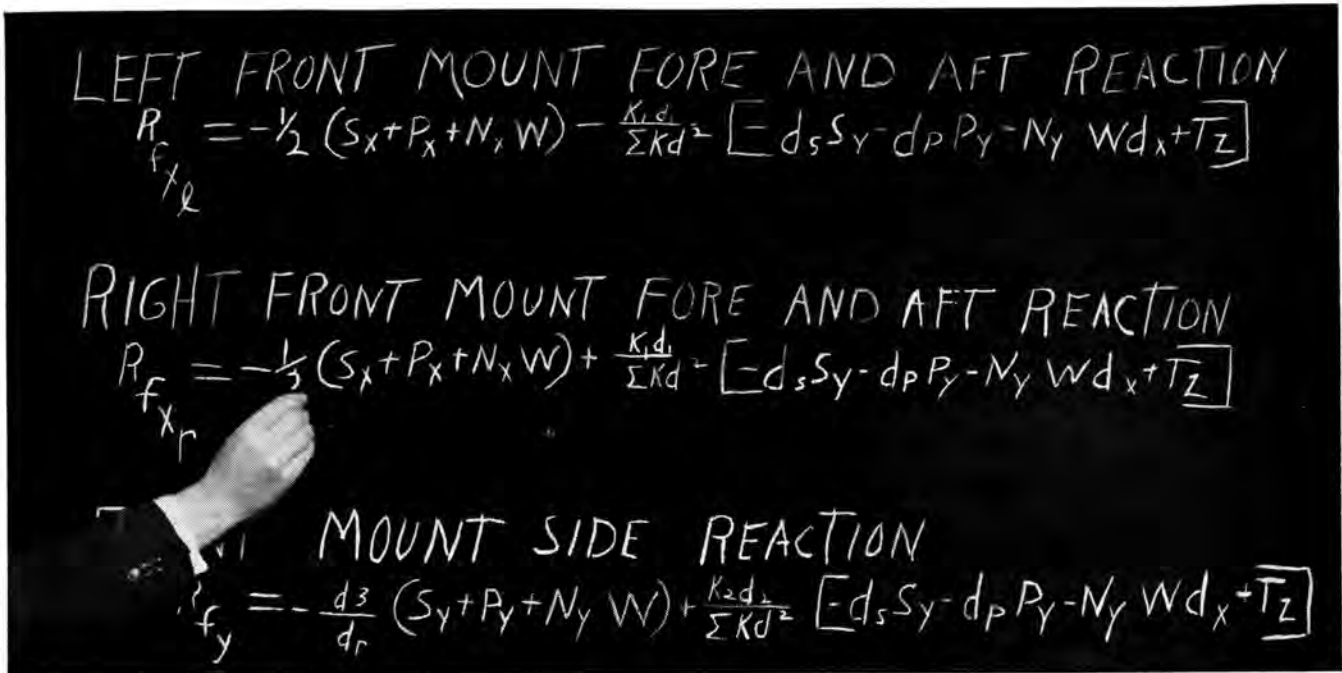 LEFT FRONT MOUNT FORE AND AFT REACTION
R_{f_{x_ℓ}} = -1/2 (S_x + P_x + N_x W) - K_1 d_1 / ΣKd² [-d_s S_y - d_p P_y - N_y W d_x + T_z]
RIGHT FRONT MOUNT FORE AND AFT REACTION
R_{f_{x_r}} = -1/2 (S_x + P_x + N_x W) + K_1 d_1 / ΣKd² [-d_s S_y - d_p P_y - N_y W d_x + T_z]
MOUNT SIDE REACTION
R_{f_y} = - d3 / d_r (S_y + P_y + N_y W) + K_2 d_2 / ΣKd² [-d_s S_y - d_p P_y - N_y W d_x + T_z]